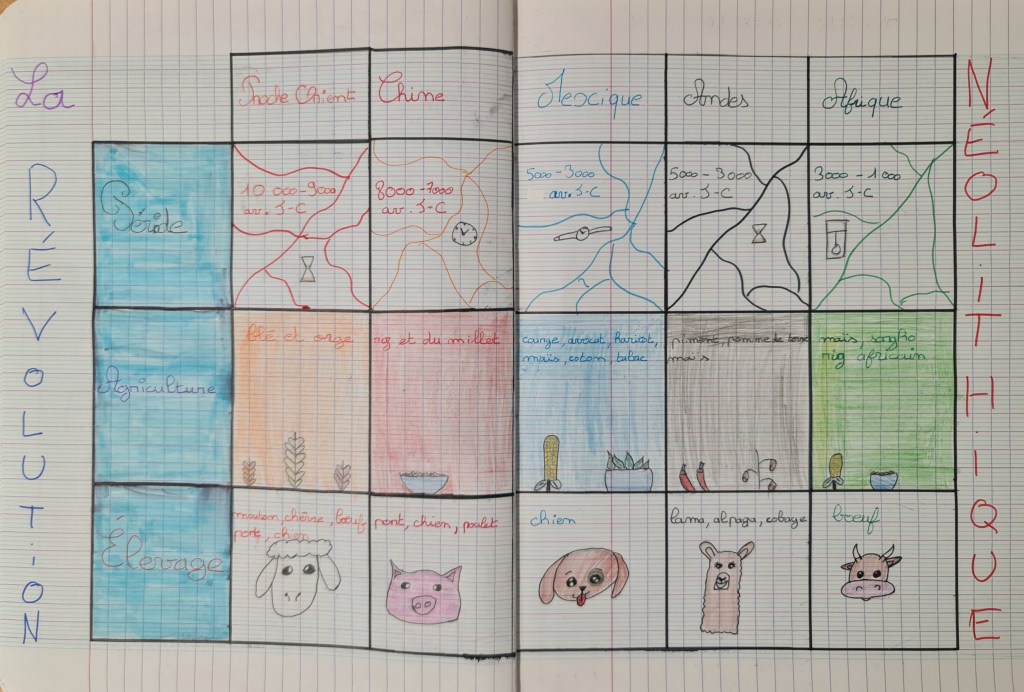 La
RÉVOLUTION
NÉOLITHIQUE
Proche Orient
Chine
Mexique
Andes
Afrique
Période
10 000-9000
av. J-C
8000-7000
av. J-C
5000-3000
av. J-C
5000-3000
av. J-C
3000-1000
av. J-C
Agriculture
blé et orge
riz et du millet
courge, avocat, haricot,
maïs, coton tabac
piment, pomme de terre
maïs
maïs, sorgho
riz africain
Élevage
mouton, chèvre, bœuf
porc, chien
porc, chien, poulet
chien
lama, alpaga, cobaye
bœuf